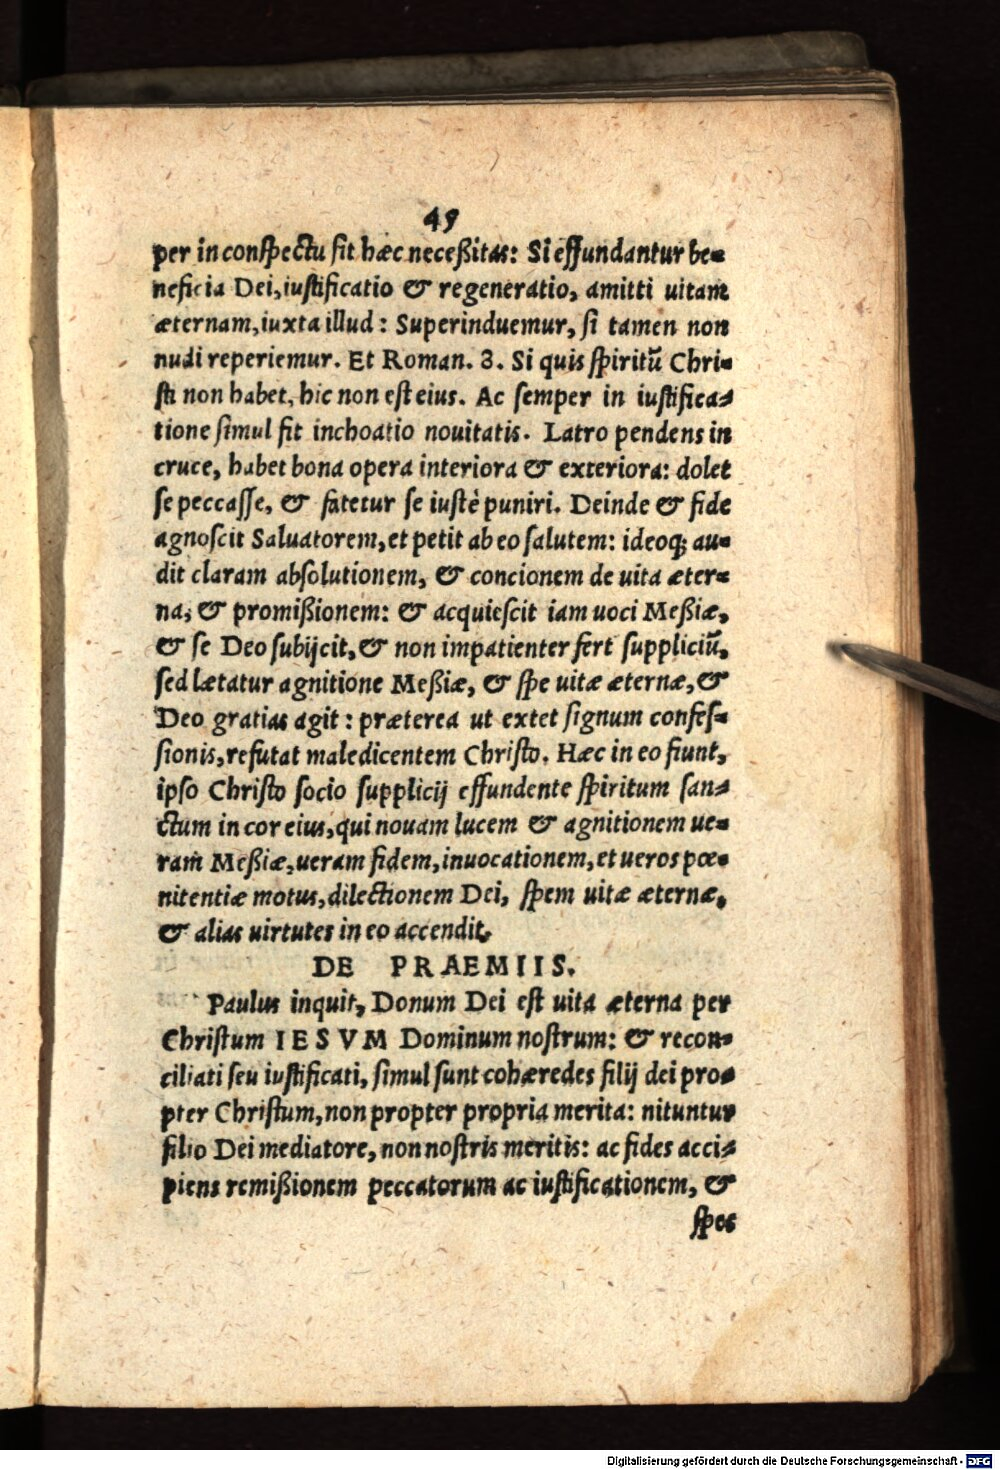 49
per in conſpectu ſit hæc neceßitas: Si effundantur be-
neficia Dei, iuſtificatio & regeneratio, amitti uitam
æternam, iuxta illud: Superinduemur, ſi tamen non
nudi reperiemur. Et Roman. 3. Si quis ſpiritũ Chri-
ſti non habet, hic non eſt eius. Ac ſemper in iuſtifica-
tione ſimul fit inchoatio nouitatis. Latro pendens in
cruce, habet bona opera interiora & exteriora: dolet
ſe peccaſſe, & fatetur ſe iuſtè puniri. Deinde & fide
agnoſcit Saluatorem, et petit ab eo ſalutem: ideoq; au-
dit claram abſolutionem, & concionem de uita æter-
na, & promißionem: & acquieſcit iam uoci Meßiæ,
& ſe Deo ſubijcit, & non impatienter fert ſuppliciũ,
ſed lætatur agnitione Meßiæ, & ſpe uitæ æternæ, &
Deo gratias agit: præterea ut extet ſignum confeſ-
ſionis, refutat maledicentem Chriſto. Hæc in eo fiunt,
ipſo Chriſto ſocio ſupplicij effundente ſpiritum ſan-
ctum in cor eius, qui nouam lucem & agnitionem ue-
ram Meßiæ, ueram fidem, inuocationem, et ueros pœ-
nitentiæ motus, dilectionem Dei, ſpem uitæ æternæ,
& alias uirtutes in eo accendit.
DE PRAEMIIS.
Paulus inquit, Donum Dei eſt uita æterna per
Chriſtum IESVM Dominum noſtrum: & recon-
ciliati ſeu iuſtificati, ſimul ſunt cohæredes filij dei pro-
pter Chriſtum, non propter propria merita: nituntur
filio Dei mediatore, non noſtris meritis: ac fides acci-
piens remißionem peccatorum ac iuſtificationem, &
ſpes
Digitalisierung gefördert durch die Deutsche Forschungsgemeinschaft - DFG